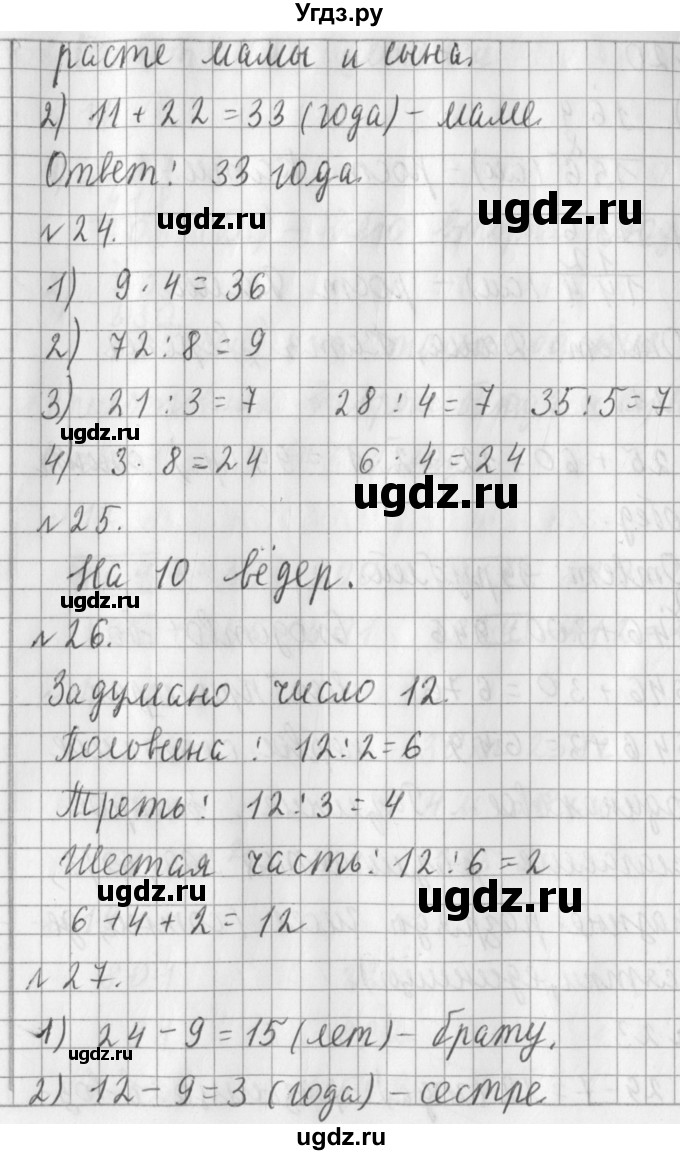 Угдз.ру
расте мамы и сына.
2) 11 + 22 = 33 (года) – маме.
Ответ: 33 года.
ugdz.ru ugdz.ru
№ 24.
1) 9 · 4 = 36
2) 72 : 8 = 9
3) 21 : 3 = 7 28 : 4 = 7 35 : 5 = 7
ugdz.ru
4) 3 · 8 = 24 6 · 4 = 24
ugdz.ru
№ 25.
На 10 вёдер.
ugdz.ru
№ 26.
Задумано число 12.
Половина : 12 : 2 = 6
Треть: 12 : 3 = 4
Шестая часть: 12 : 6 = 2
ugdz.ru ugdz.ru
6 + 4 + 2 = 12
№ 27.
1) 24 – 9 = 15 (лет) – брату.
ugdz.ru
2) 12 – 9 = 3 (года) – сестре.
ugdz.ru